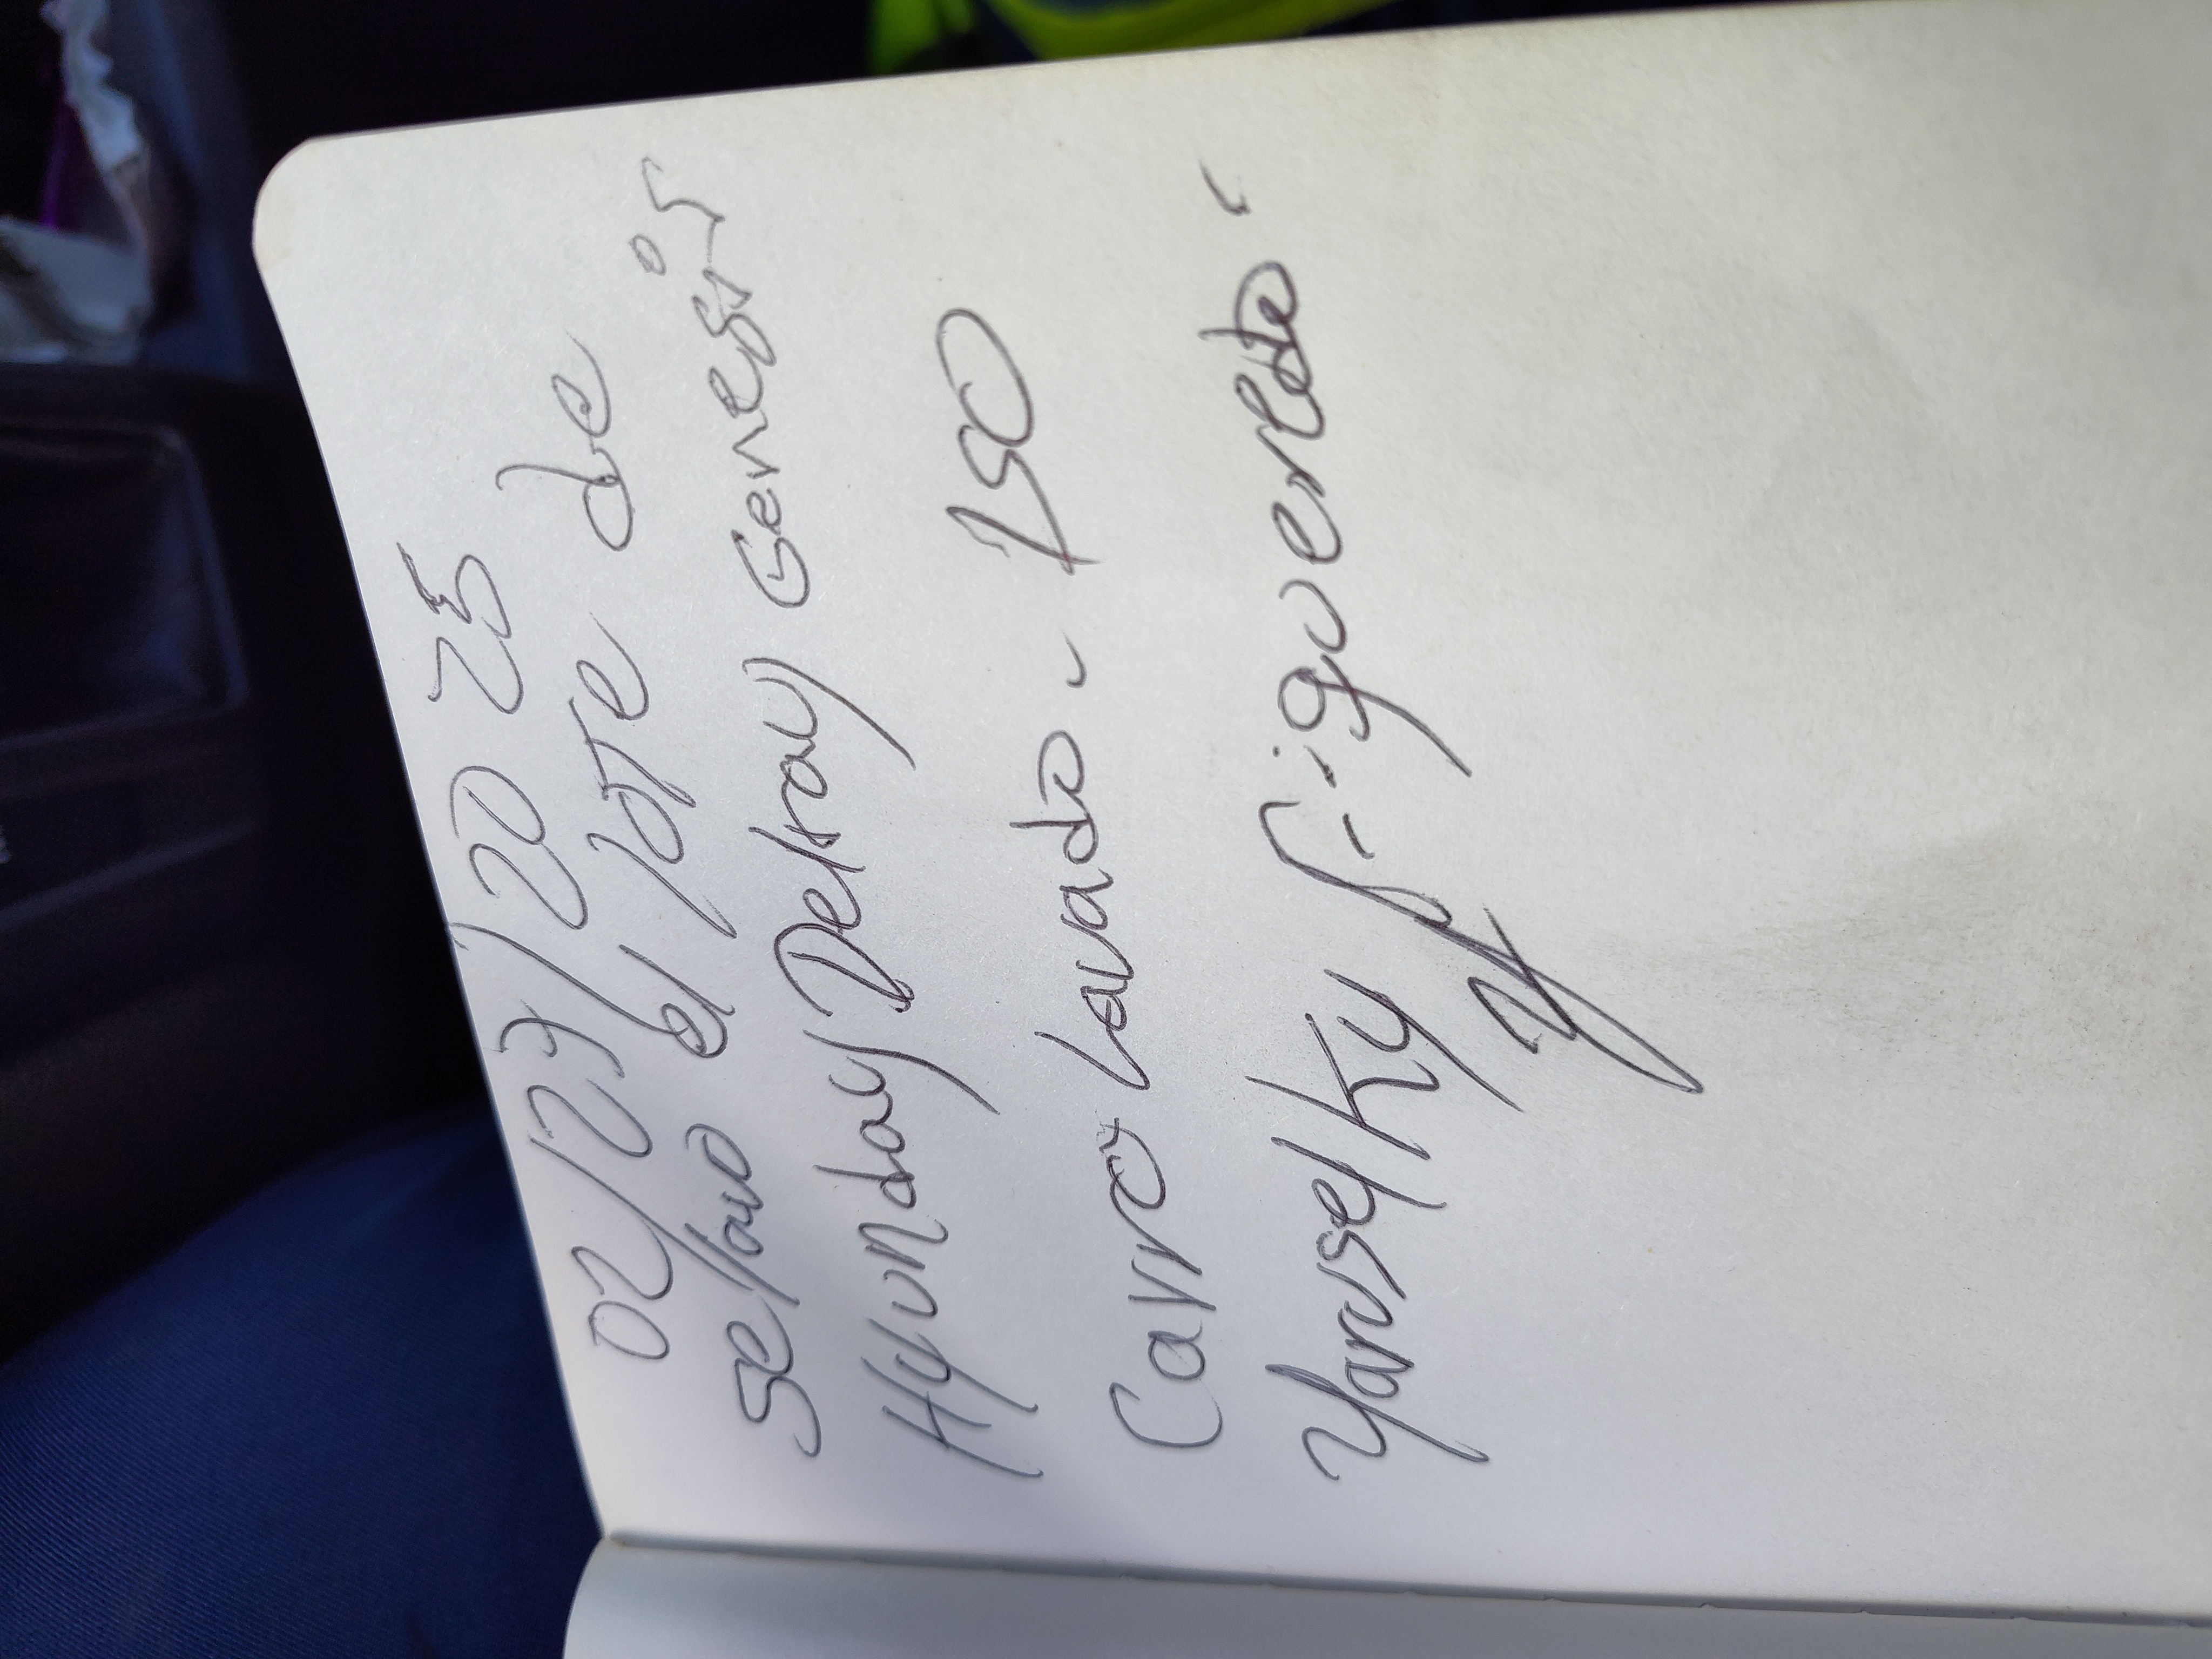 02/27/2025
se lavo el lote de
Hyunday Delray Genesis
Carros Lavado - 150
Yanselky figueredo -